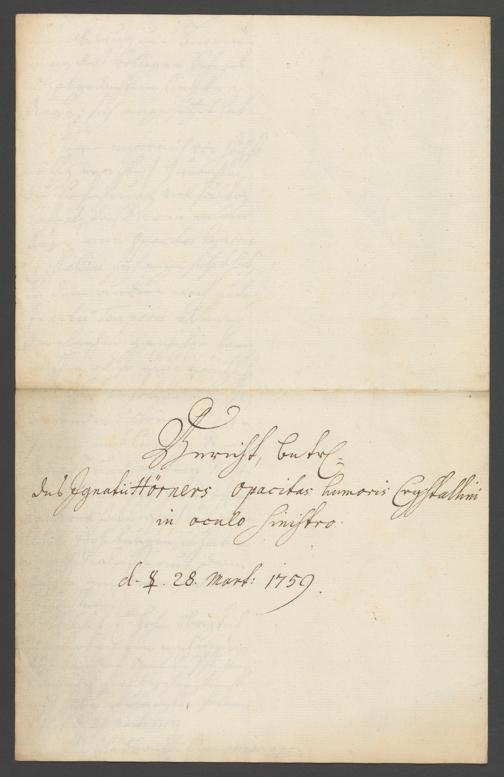 Bericht, betr:
des Ignatii Hörners opacitas humoris Crystallini
in oculo sinistro.
d. ☿. 28. Mart: 1759.